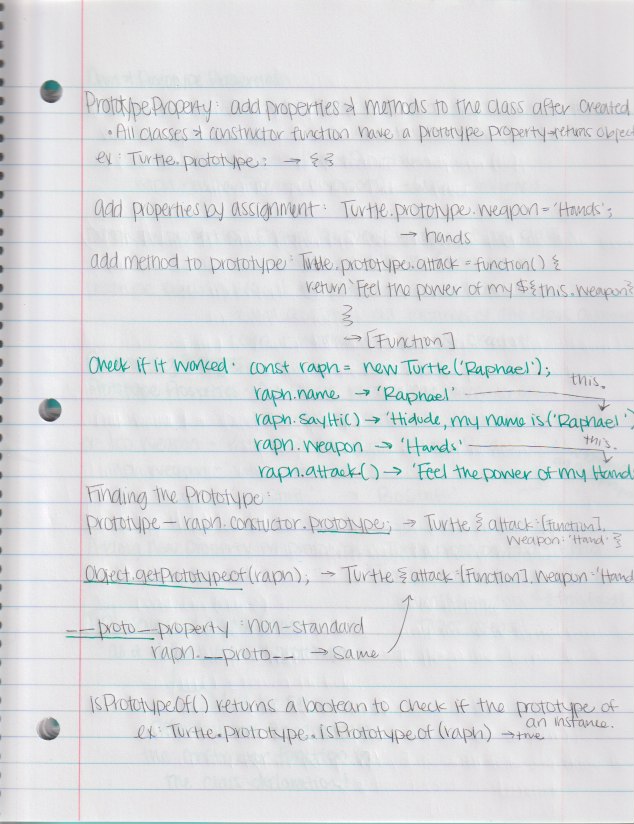 Prototype Property: add properties & methods to the class after created.
• All classes & constructor function have a prototype property → returns object
ex: Turtle.prototype; → {}
add properties by assignment: Turtle.prototype.weapon = 'Hands';
→ hands
add method to prototype: Turtle.prototype.attack = function() {
return `Feel the power of my ${this.weapon}
}
→ [Function]
Check if it worked: const raph = new Turtle('Raphael');
raph.name → 'Raphael' this.
raph.sayHi() → 'Hi dude, my name is ('Raphael')
raph.weapon → 'Hands' this.
raph.attack() → 'Feel the power of my Hand
Finding the Prototype:
prototype — raph.contuctor.prototype; → Turtle { attack: [Function],
weapon: 'Hand' }
Object.getPrototypeof(raph); → Turtle { attack: [Function], weapon: 'Hand
__proto__ property: non-standard
raph.__proto__ → same
isPrototypeOf() returns a boolean to check if the prototype of
an instance.
ex: Turtle.prototype.isPrototypeof(raph) → true